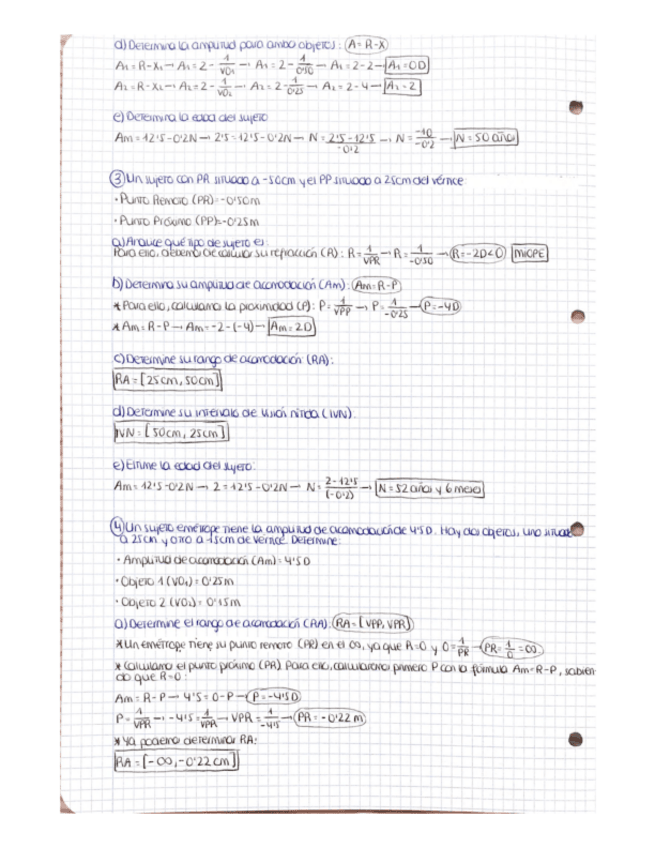 d) Determina la amplitud para ambo objetos: A = R-X
A₁ = R-X₁ → A₁ = 2 - 1/VO₁ → A₁ = 2 - 1/0'50 → A₁ = 2-2 → A₁ = 0D
A₂ = R-X₂ → A₂ = 2 - 1/VO₂ → A₂ = 2 - 1/0'25 → A₂ = 2-4 → A₂ - 2
e) Determina la edad del sujeto
Am = 12'5-0'2N → 2'5 = 12'5-0'2N → N = 2'5-12'5/-0'2 → N = -10/-0'2 → N = 50 años
③ Un sujeto con PR situado a -50cm y el PP situado a 25cm del vérnice
· Punto Remoto (PR) = -0'50m
· Punto Próximo (PP) = -0'25m
a) Analice qué tipo de sujeto es:
Para ello, debemo de calcular su refracción (R): R = 1/VPR → R = 1/-0'50 → R = -2D<0 MIOPE
b) Determina su amplitud de acomodación (Am): Am = R-P
* Para ello, calculamo la proximidad (P): P = 1/VPP → P = 1/-0'25 → P = -4D
* Am = R-P → Am = -2-(-4) → Am = 2D
c) Determine su rango de acomodación (RA):
RA = [25cm, 50cm]
d) Determine su intervalo de visión nítida (IVN)
IVN = [50cm, 25cm]
e) Estime la edad del sujeto:
Am = 12'5-0'2N → 2 = 12'5-0'2N → N = 2-12'5/(-0'2) → N = 52 años y 6 mese
④ Un sujeto emétrope tiene la amplitud de acomodación de 4'5D. Hay dos objetos, uno situado
a 25cm y otro a 15cm de vérnice. Determine:
· Amplitud de acomodación (Am) = 4'5D
· Objeto 1 (VO₁) = 0'25m
· Objeto 2 (VO₂) = 0'15m
a) Determine el rango de acomodación (RA): RA = [VPP, VPR]
* Un emétrope tiene su punto remoto (PR) en el ∞, ya que R=0 y 0 = 1/PR → PR = 1/0 = ∞
* Calculamo el punto próximo (PR) Para ello, calcularemo primero P con la fórmula Am = R-P, sabien
do que R=0:
Am = R-P → 4'5 = 0-P → P = -4'5D
P = 1/VPR → -4'5 = 1/VPR → VPR = 1/-4'5 → PR = -0'22m
* Ya podemo determinar RA:
RA = [-∞, -0'22cm]